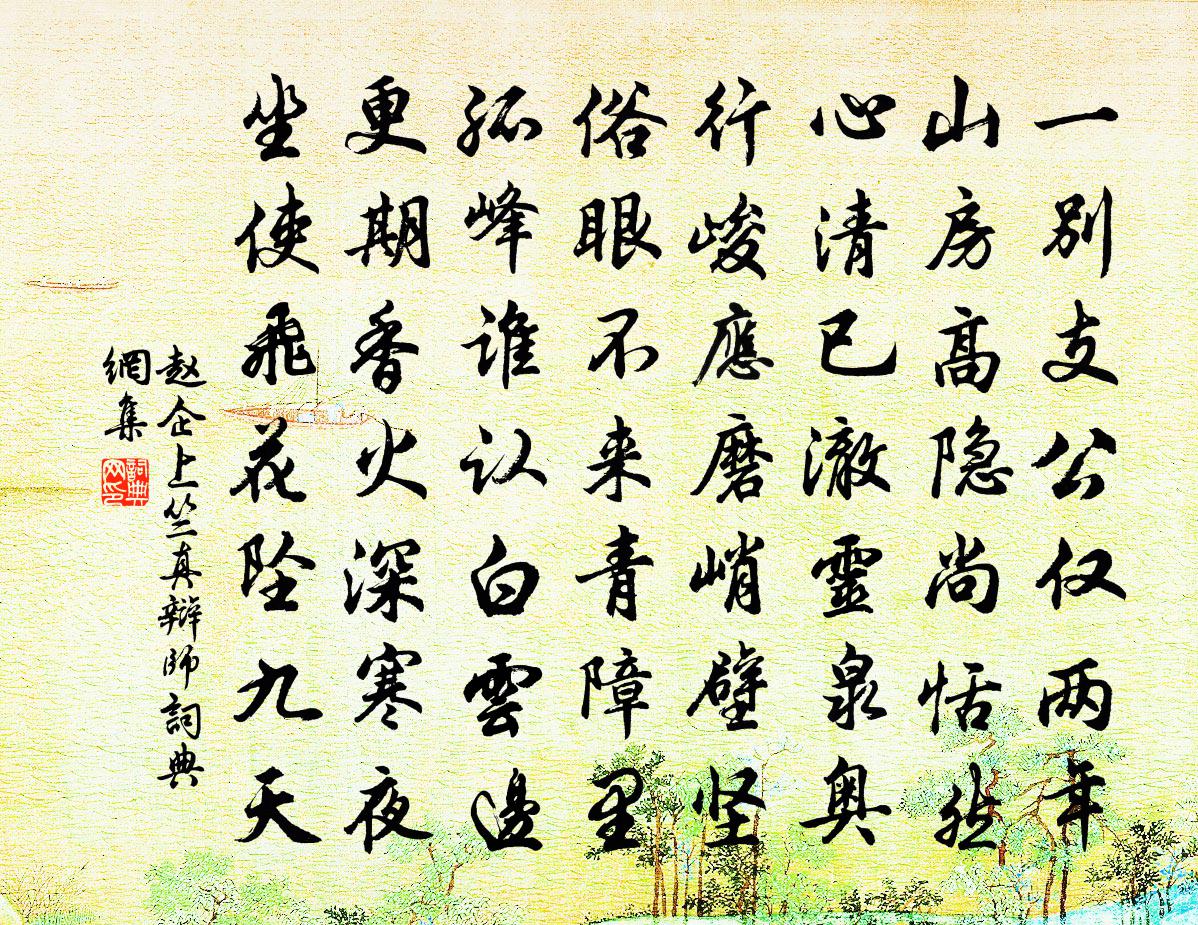 一别支公仅两年
山房高隐尚恬然
心清已澈靈泉奥
行峻應磨峭壁坚
俗眼不来青障里
孤峰谁认白雲邊
更期香火深寒夜
坐使飛花坠九天
赵企上竺真辯師詞典
網集
詞典网印